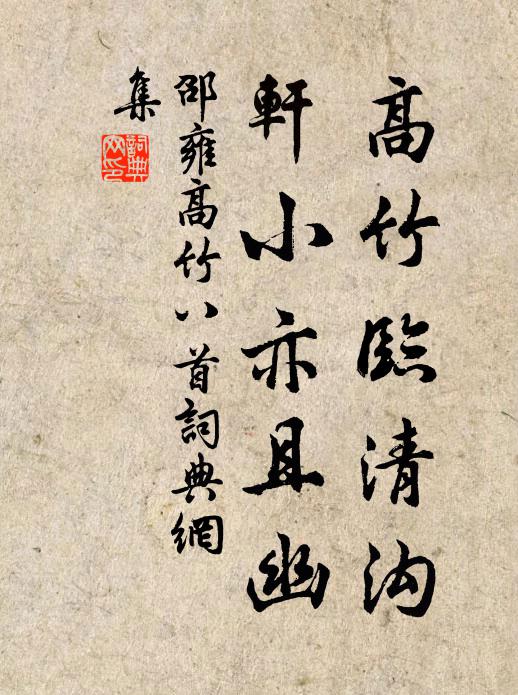 高竹臨清沟
軒小亦且幽
邵雍高竹八首詞典網
集
詞典
网印